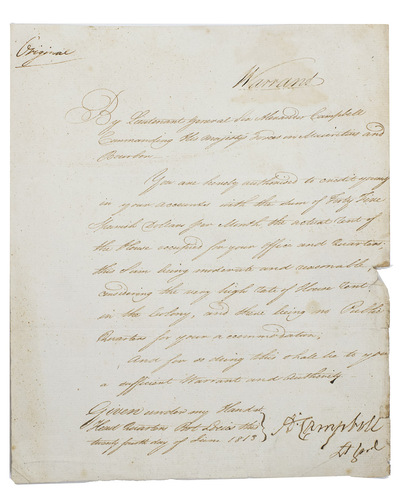 Original
Warrant
By Lieutenant General Sir Alexander Campbell
Commanding His Majesty's Forces in Mauritius and
Bourbon.
You are hereby authorised to credit yourself
in your accounts with the Sum of
Spanish Dollars per Month, the actual Rent of
the House occupied for your Office and Quarters,
this Sum being moderate and reasonable,
considering the very high rate of House Rent
in the Colony, and there being no Public
Quarters for your accommodation.
And for so doing this shall be to you
a sufficient Warrant and Authority
Given under my Hand
Head Quarters Port Louis this
twenty fourth day of June 1813
A Campbell
Lt Genl